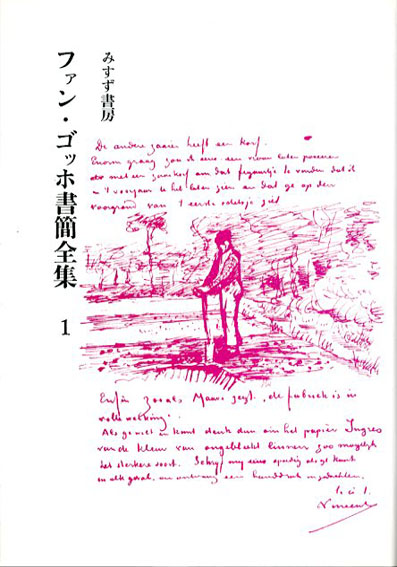 みすず書房
ファン・ゴッホ書簡全集
1
De andere zaaier heeft een korf.
Enorm graag zou ik eens een vrouw laten poseeren
met een zaaikorf om dat figuurtje te vinden dat ik
't voorjaar U heb laten zien en dat ge op den
voorgrond van 't eerste schetsje ziet
Enfin zooals Mauve zegt, de fabriek is in
volle werking.
Als ge wilt en kunt denk dan om het papier Ingres
van de kleur van ongebleekt linnen zoo mogelijk
het sterkere soort. Schrijf mij eens spoedig als ge kunt
in elk geval, en ontvang een handdruk in gedachten.
t. à t.
Vincent